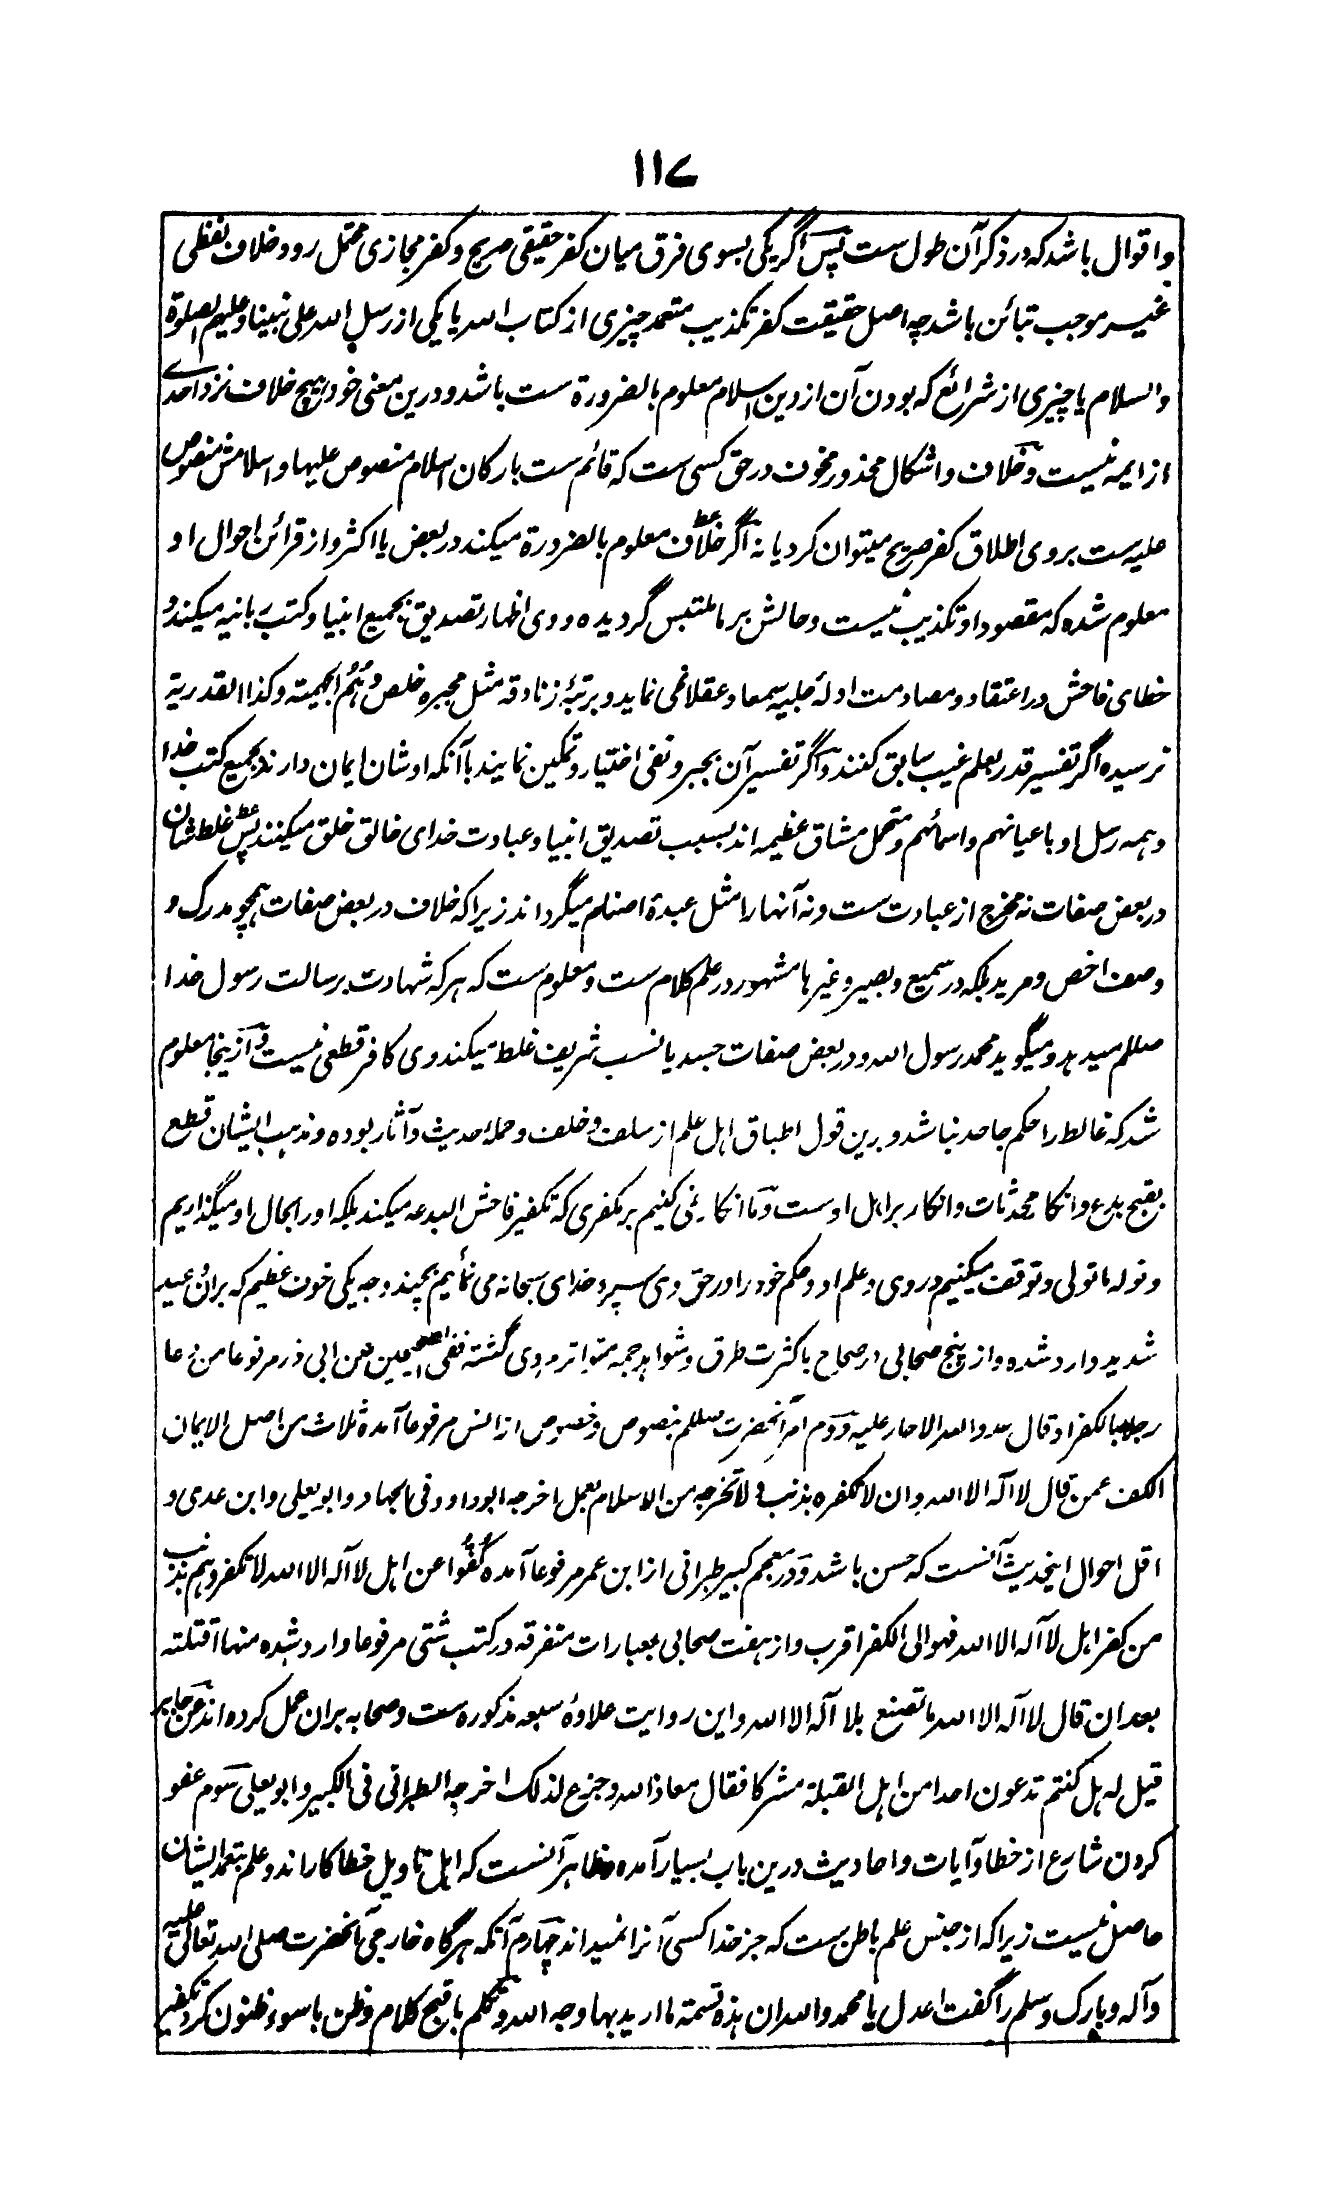 ۱۱۷
واقوال باشد که در ذکر آن طول ست پس اگر یکی بسوی فرق میان کفر حقیقی صریح و کفر مجازی محتمل رود خلاف لفظی
غیر موجب تبائن باشد چه اصل حقیقت کفر تکذیب متعمد چیزی از کتاب الله یا یکی از رسل الله علی نبینا وعلیهم الصلوة
والسلام یا چیزی از شرائع که بودن آن از دین اسلام معلوم بالضرورة ست باشد و درین معنی خود هیچ خلاف نزد احدے
از ایمه نیست و خلاف و اشکال محذور مخوف در حق کسی ست که قائم ست بارکان اسلام منصوص علیها و اسلامش منصوص
علیه ست بر وی اطلاق کفر صریح میتوان کرد یا نه اگر خلاف معلوم بالضرورة میکند در بعض یا اکثر و از قرائن احوال او
معلوم شده که مقصود او تکذیب نیست و حالش بر ما ملتبس گردیده و وی اظهار تصدیق بجمیع انبیا و کتب ربانیه میکند و
خطای فاحش در اعتقاد و مصادمت اولهٔ جلیه سمعا و عقلا می نماید و برتبهٔ زنادقه مثل مجبره خلص وهُمُ الجهمیته وکذا القدریة
نرسیده اگر تفسیر قدر بعلم غیب سابق کنند و اگر تفسیر آن بجبر و نفی اختیار و تمکین نمایند با آنکه اوشان ایمان دارند بجمیع کتب خدا
و همه رسل او باعیانهم و اسمائهم و متحمل مشاق عظیمه اند بسبب تصدیق انبیا و عبادت خدای خالق خلق میکنند پس غلط شان
در بعض صفات نه مخرج از عبادت ست و نه آنها را مثل عبدهٔ اصنام میگرداند زیرا که خلاف در بعض صفات همچو مدرک و
وصف اخص و مرید بلکه در سمیع و بصیر و غیرها مشهور در علم کلام ست و معلوم ست که هر که شهادت برسالت رسول خدا
صللم میدهد و میگوید محمد رسول الله و در بعض صفات جسد یا نسب شریف غلط میکند وی کافر قطعی نیست و از ینجا معلوم
شد که غالط را حکم جاحد نباشد و برین قول اطباق اهل علم از سلف و خلف و حملهٔ حدیث و آثار بوده و مذهب ایشان قطع
بقبح بدع و انکار محدثات و انکار بر اهل اوست و ما انکار نمی کنیم بر مکفری که تکفیر فاحش البدعه میکند بلکه او را بحال او میگذاریم
و نوله ما تولی و توقف میکنیم در وی و علم او و حکم خود را در حق وی سپرد خدای سبحانه می نمائیم بچند وجه یکی خوف عظیم که بران وعید
شدید وارد شده و از پنج صحابی در صحاح با کثرت طرق و شواهد جمه متواتر مروی گشته ففی الصحیحین عن ابی ذر مرفوعا من دعا
رجلا بالکفر او قال عدو الله الا حار علیه و دوم امر آنحضرت صللم بنصوص و خصوص از انس مرفوعا آمده ثلاث من اصل الایمان
الکف عمن قال لا اله الا الله وان لا نکفره بذنب و لا نخرجه من الاسلام بعمل اخرجه ابو داود فی الجهاد و ابو یعلی و ابن عدی و
اقل احوال اینحدیث آنست که حسن باشد و در معجم کبیر طبرانی از ابن عمر مرفوعا آمده کُفُّوا عن اهل لا اله الا الله لا تکفروهم بذنب
من کفر اهل لا اله الا الله فهو الی الکفر اقرب و از هفت صحابی بعبارات متفرقه در کتب شتی مرفوعا وارد شده منها اقتلته
بعد ان قال لا اله الا الله ما تصنع بلا اله الا الله و این روایت علاوهٔ سبعه مذکوره ست و صحابه بران عمل کرده اند عن جابر
قیل له هل کنتم تدعون احدا من اهل القبلة مشرکا فقال معاذ الله و جزع لذلک اخرجه الطبرانی فی الکبیر و ابو یعلی سوم عفو
کردن شارع از خطا و آیات و احادیث درین باب بسیار آمده و ظاهر آنست که اهل تاویل خطا کاراند و علم بتعمد ایشان
حاصل نیست زیرا که از جنس علم باطن ست که جز خدا کسی آنرا نمیداند چهارم آنکه هرگاه خارجی آنحضرت صلی الله تعالی علیه
وآله وبارک وسلم را گفت اعدل یا محمد والله ان هذه قسمة ما ارید بها وجه الله و تکلم باقبح کلام و ظن باسوء ظنون کرد تکفیر